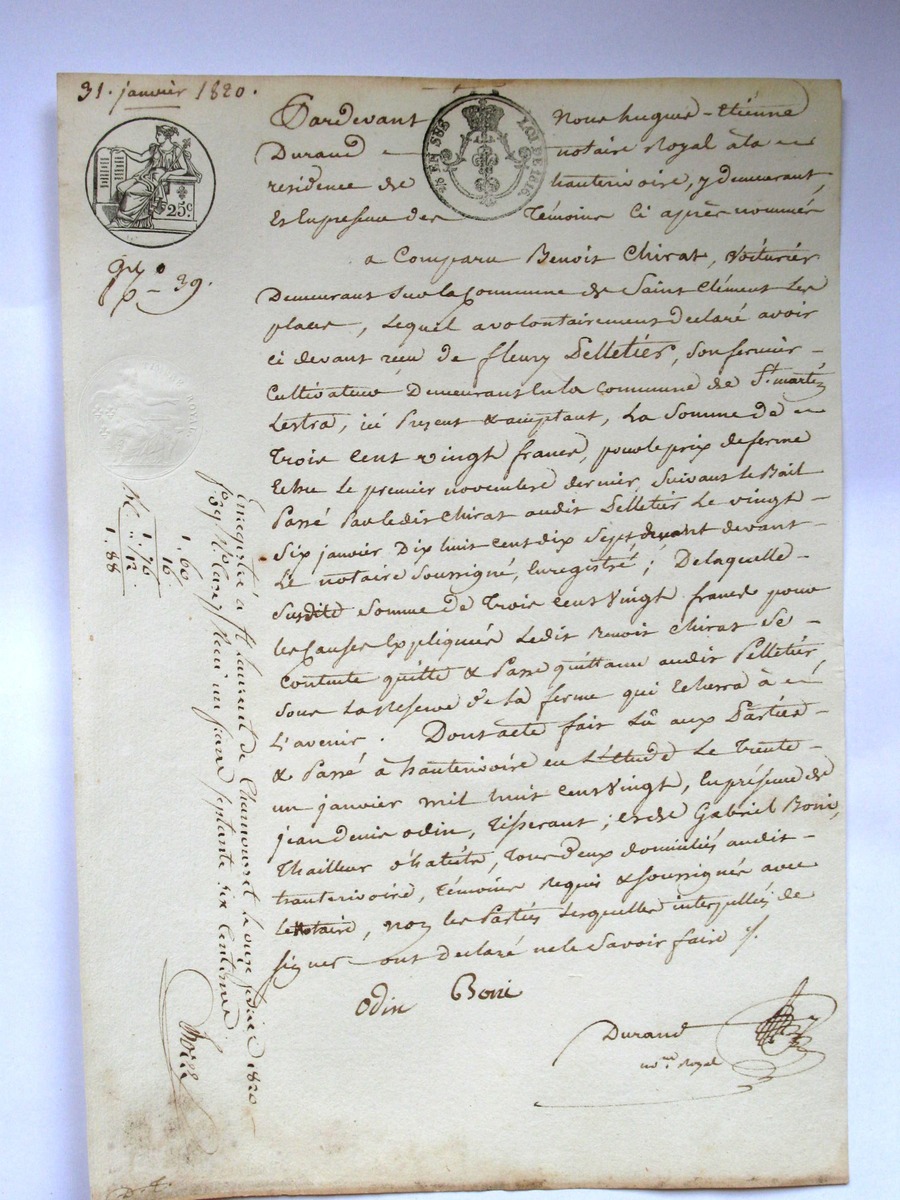 31. janvier 1820.
Pardevant Nous hugues-Etienne
Durand notaire Royal à la
residence de hauterivoire, y demeurant,
Et En presence des Témoins Ci après nommés
a Comparu Benoit Chirat, Voiturier
Demeurant sur la Commune de Saint Clément Les
places, Lequel a volontairement declaré avoir
ci devant reçu de fleury Pelletier, Son fermier
Cultivateur Demeurant En la Commune de St. martin
Lestra, ici Present & acceptant, La Somme de
Trois Cent vingt francs, pour le prix de ferme
Echu Le premier novembre dernier, Suivant le Bail
Passé Par ledit Chirat audit Pelletier Le vingt
Six janvier Dix huit Cent dix Sept devant
Le notaire Soussigné, Enregistré; De laquelle
Susdite Somme de Trois Cent Vingt francs pour
les Causes Expliquées Ledit Benoit Chirat Se
Contente quitte & Passe quittance audit Pelletier
Sous La Reserve de la ferme qui Echerra à
L'avenir. Dont acte fait Lû aux Parties
& Passé à hauterivoire en L'Etude Le Trente
un janvier mil huit Cent Vingt, En presence de
jean Denis odin, Tisserant; et de Gabriel Boni,
Thailleur d'habits, Tous Deux domiciliés audit
hauterivoire, Témoins Requis & Soussignés avec
Le Notaire, non les Parties Lesquelles interpellées de
signer ont Declaré ne le Savoir faire
Odin Boni
Durand
no.re Royal
25c
EN SUS
LOI DE 1816.
39.
1.60
16
1.76
12
1.88
Enregistré à St. Laurent de Chamousset le onze février 1820
fo. 39 Reçu un franc septante six Centimes